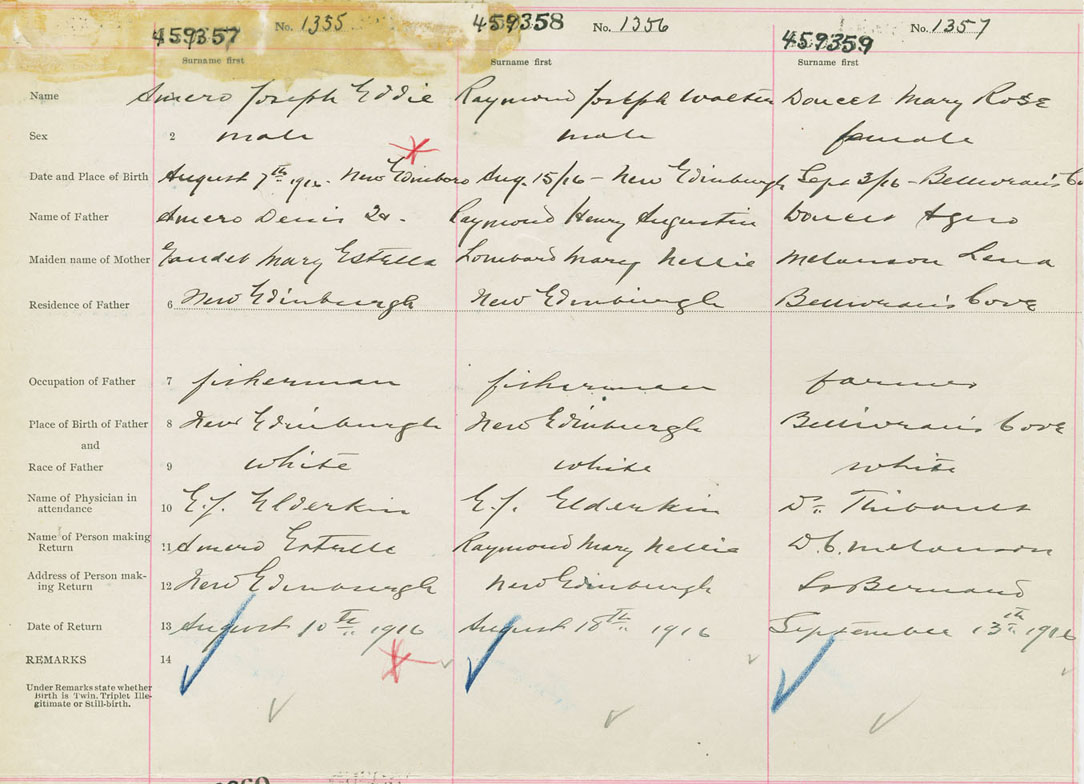 No. 1355 No. 1356 No. 1357
459357 459358 459359
Surname first Surname first Surname first
Name Amero Joseph Eddie Raymond Joseph Walter Doucet Mary Rose
Sex 2 male male female
Date and Place of Birth August 7th 1916. New Edinboro Aug. 15/16 - New Edinburgh Sept 3/16 - Belliveau's Co
Name of Father Amero Denis 2d. Raymond Henry Augustin Doucet
Maiden name of Mother Gaudet Mary Estella Lombard Mary Nellie Melanson Lena
Residence of Father 6 New Edinburgh New Edinburgh Belliveau's Cove
Occupation of Father 7 fisherman fisherman farmer
Place of Birth of Father 8 New Edinburgh New Edinburgh Belliveau's Cove
and
Race of Father 9 white white white
Name of Physician in
attendance 10 E.J. Elderkin E.J. Elderkin Dr. Thibault
Name of Person making
Return 11 Amero Estella Raymond Mary Nellie D.C. Melanson
Address of Person mak-
ing Return 12 New Edinburgh New Edinburgh St Bernard
Date of Return 13 August 10th 1916 August 18th 1916 September 13th 1916
REMARKS 14
Under Remarks state whether
Birth is Twin, Triplet Ille-
gitimate or Still-birth.